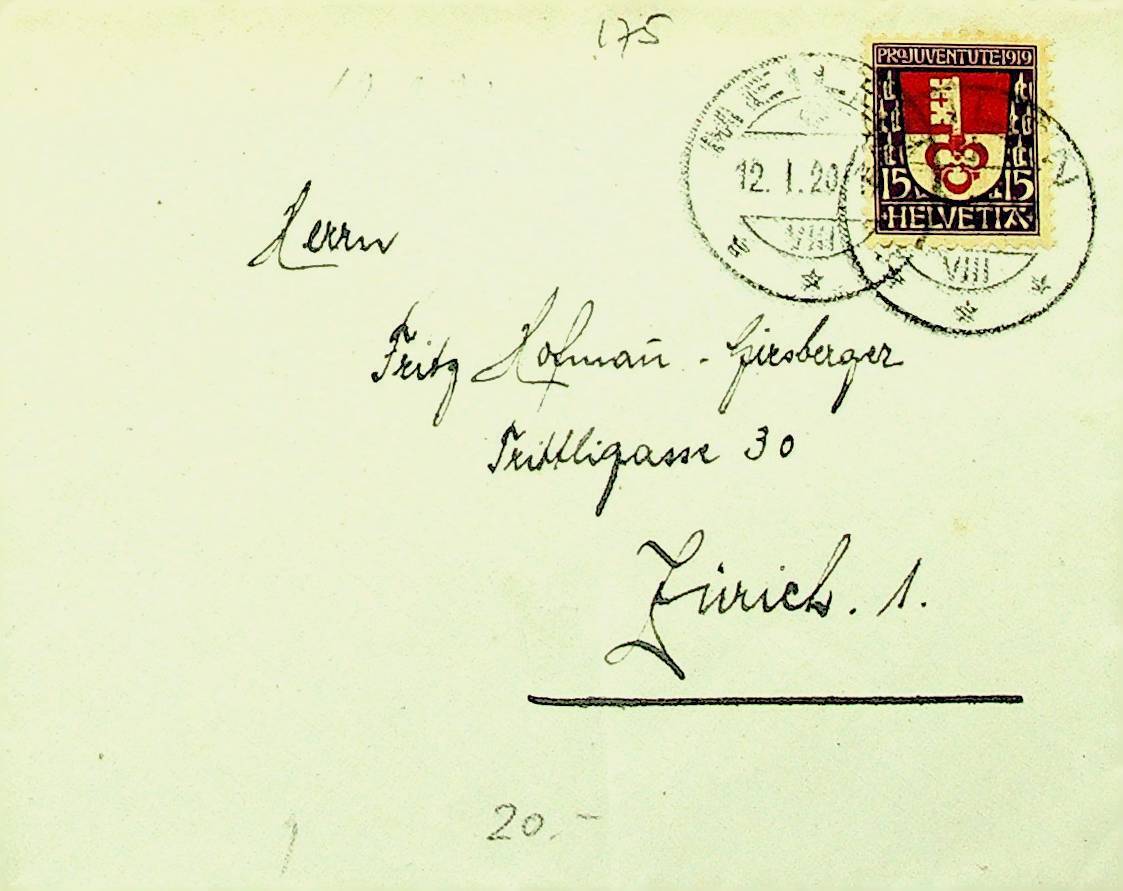 175
PRO JUVENTUTE 1919
15 15
HELVETIA
12.I.20
VIII
VIII
Herrn
Fritz Hofmañ - Girsberger
Trittligasse 30
Zürich. 1.
20.-